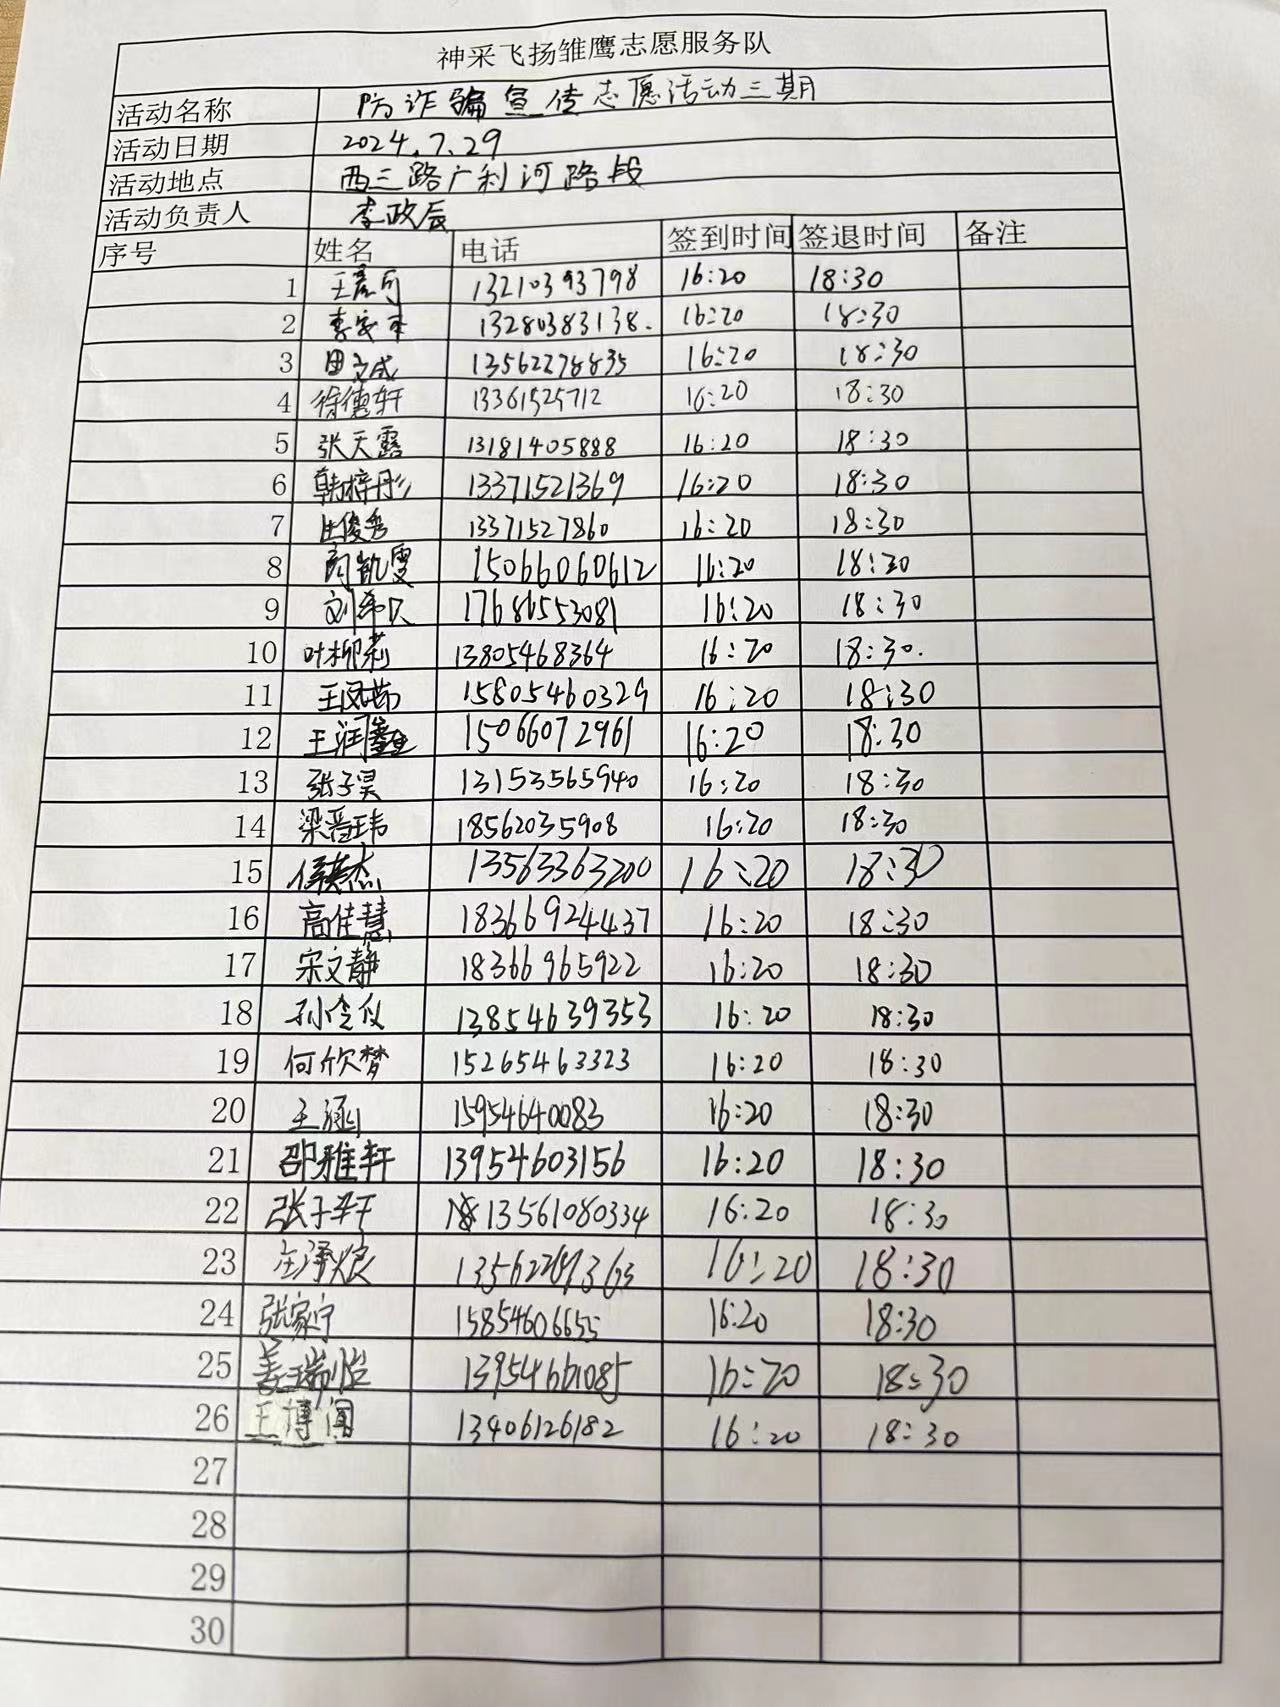 神采飞扬雏鹰志愿服务队
活动名称 防诈骗宣传志愿活动三期
活动日期 2024.7.29
活动地点 西三路广利河路段
活动负责人 李政辰
序号 姓名 电话 签到时间 签退时间 备注
1 13210393798 16:20 18:30
2 13280383138. 16:20 18:30
3 田文成 13562278835 16:20 18:30
4 徐德轩 13361525712 16:20 18:30
5 张天露 13181405888 16:20 18:30
6 韩梓彤 13371521369 16:20 18:30
7 庄俊秀 13371527860 16:20 18:30
8 15066060612 16:20 18:30
9 17686553081 16:20 18:30
10 叶柳莉 13805468364 16:20 18:30.
11 王凤茹 15805460329 16:20 18:30
12 王润鑫 15066072961 16:20 18:30
13 张子昊 13153565940 16:20 18:30
14 梁晋玮 18562035908 16:20 18:30
15 侯英杰 13563363200 16:20 18:30
16 高佳慧 18366924437 16:20 18:30
17 宋文静 18366965922 16:20 18:30
18 孙令仪 13854639353 16:20 18:30
19 何欣梦 15265463323 16:20 18:30
20 王涵 15954640083 16:20 18:30
21 邵雅轩 13954603156 16:20 18:30
22 张子轩 13561080334 16:20 18:30
23 16:20 18:30
24 张家宁 15854606655 16:20 18:30
25 姜瑞怡 13954661085 16:20 18:30
26 王博闻 13406126182 16:20 18:30
27
28
29
30